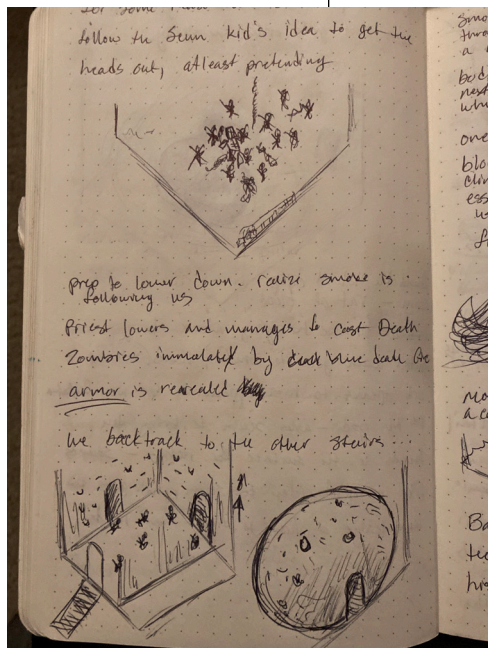 follow the
kid's idea to get the
heads out, atleast pretending
prep to lower down. realize smoke is
following us
Priest lowers and manages to cast Death
Zombies immolated by blue
armor is revealed
we backtrack to the other stairs...
smo
thro
a
bod
nest
whe
one
blo
clin
ess
Mo
a c
Ba
tee
hig